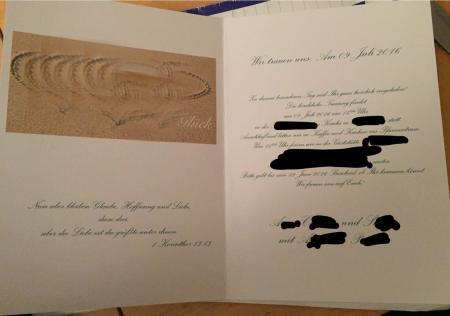 Glück
Nun aber bleiben Glaube, Hoffnung und Liebe,
diese drei,
aber die Liebe ist die größte unter ihnen.
1 Korinther 13.13
Wir trauen uns Am 09 Juli 2016
Zu diesem besonderen Tag seid Ihr ganz herzlich eingeladen!
Die kirchliche Trauung findet
am 09 Juli 2016 um Uhr
in der Kirche in statt
Anschließend bitten wir zu Kaffee und Kuchen ins
Um Uhr feiern wir in der Gaststätte
weiter
Bitte gebt bis zum Juni 2016 Bescheid ob Ihr kommen könnt
Wir freuen uns auf Euch!
und
mit